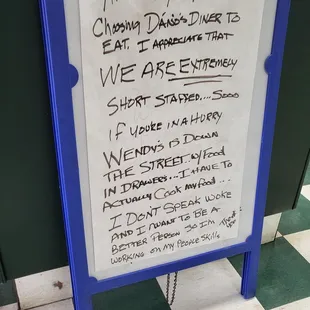 Choosing Dano's Diner to
Eat. I appreciate that
We are extremely
short staffed.... Sooo
if you're in a hurry
Wendy's is down
the street w/ food
in drawers... I have to
actually cook my food...
I don't speak woke
and I want to be a
better person so I'm
working on my people skills